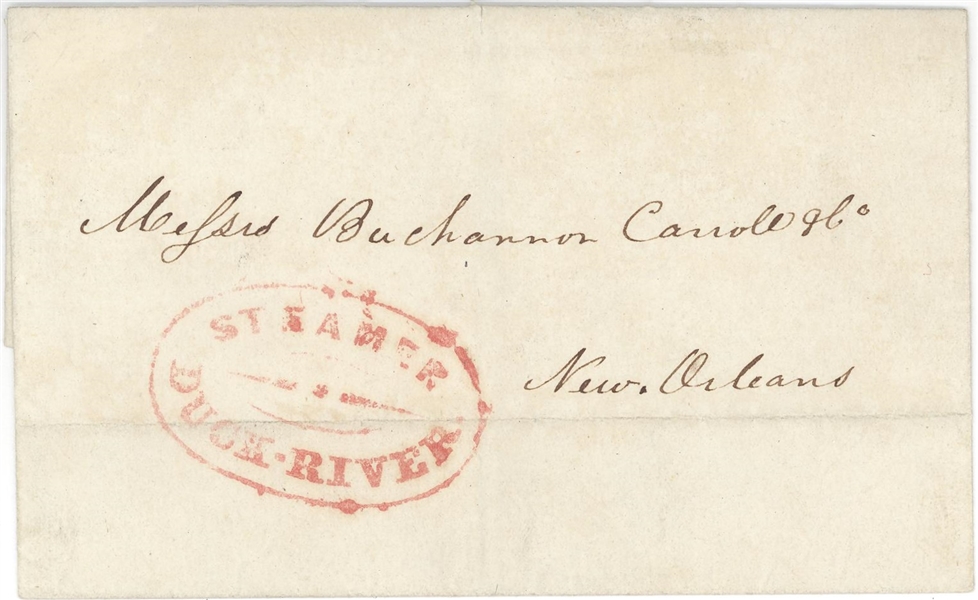 Messrs Buchannon Carroll & Co
STEAMER
DUCK-RIVER
New. Orleans